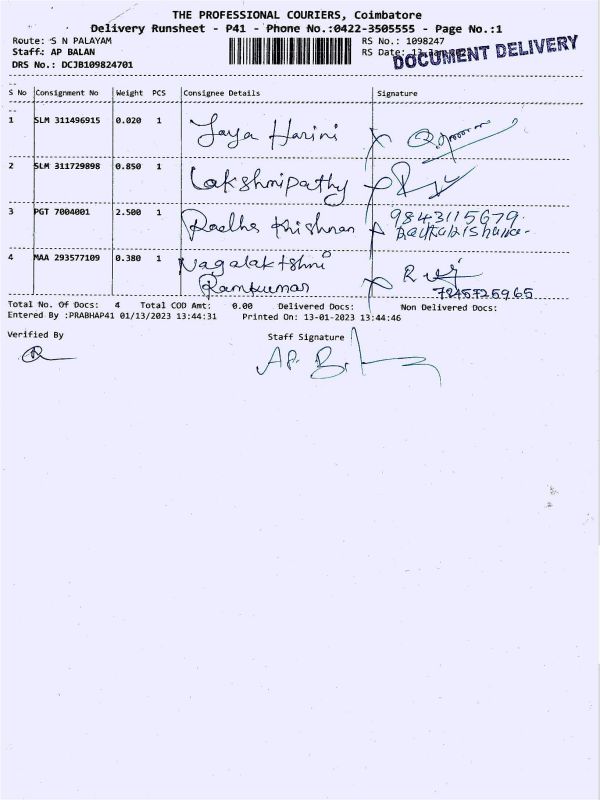 THE PROFESSIONAL COURIERS, Coimbatore
Delivery Runsheet - P41 - Phone No.:0422-3505555 - Page No.:1
Route: S N PALAYAM
RS No.: 1098247
Staff: AP BALAN
RS Date:
DOCUMENT DELIVERY
DRS No.: DCJB109824701
S No Consignment No Weight PCS Consignee Details Signature
1 SLM 311496915 0.020 1 Jaya Harini
2 SLM 311729898 0.850 1 Lakshmipathy
3 PGT 7004001 2.500 1 Radha Krishnan 9843115679
4 MAA 293577109 0.380 1 Nagalakshmi
Ramkumar 7845725965
Total No. Of Docs: 4 Total COD Amt: 0.00 Delivered Docs: Non Delivered Docs:
Entered By :PRABHAP41 01/13/2023 13:44:31 Printed On: 13-01-2023 13:44:46
Verified By Staff Signature
AP. B